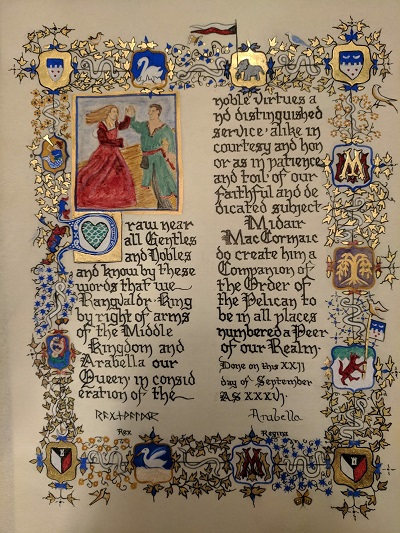 Draw near
all Gentles
and Nobles
and know by these
words that we
Rangvaldr King
by right of arms
of the Middle
Kingdom and
Arabella our
Queen in consid
eration of the
Rex
noble virtues a
nd distinguished
service alike in
courtesy and hon
or as in patience
and toil of our
faithful and de
dicated subject
Midair
MacCormaic
do create him a
Companion of
the Order of
the Pelican to
be in all places
numbered a Peer
of our Realm.
Done on this XXII
day of September
AS XXXVI.
Arabella
Regina